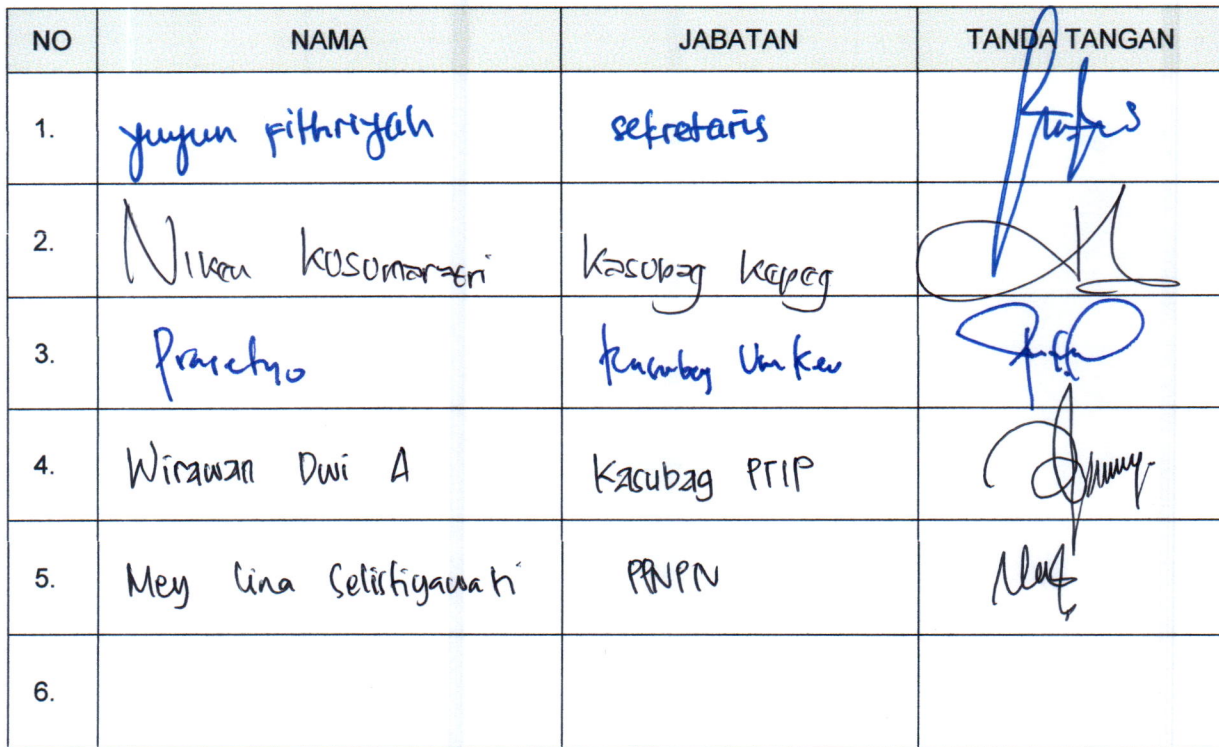 NO NAMA JABATAN TANDA TANGAN
1. yuyun Fithriyah sekretaris
2. Niken Kusumaratri Kasubag Kepeg
3. Prasetyo Kasubag Um Keu
4. Wirawan Dwi A Kasubag PTIP
5. Mey Lina Selistiyawati PPNPN
6.